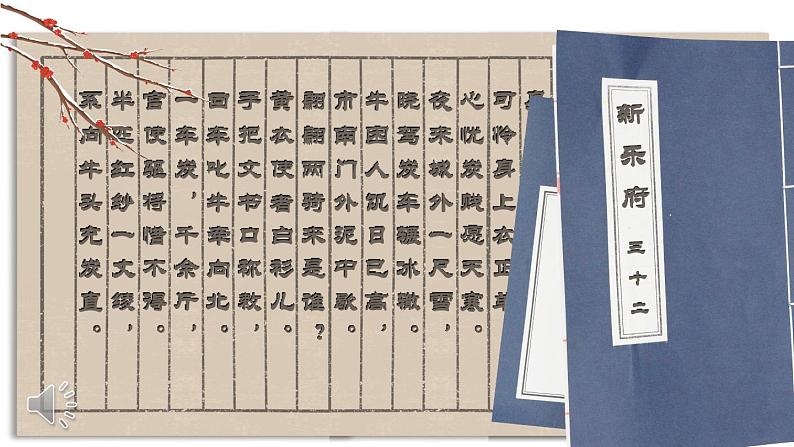 新乐府 三十二
可怜身上衣正单
心忧炭贱愿天寒。
夜来城外一尺雪，
晓驾炭车辗冰辙。
牛困人饥日已高，
市南门外泥中歇。
翩翩两骑来是谁？
黄衣使者白衫儿。
手把文书口称敕，
回车叱牛牵向北。
一车炭，千余斤，
宫使驱将惜不得。
半匹红纱一丈绫，
系向牛头充炭直。